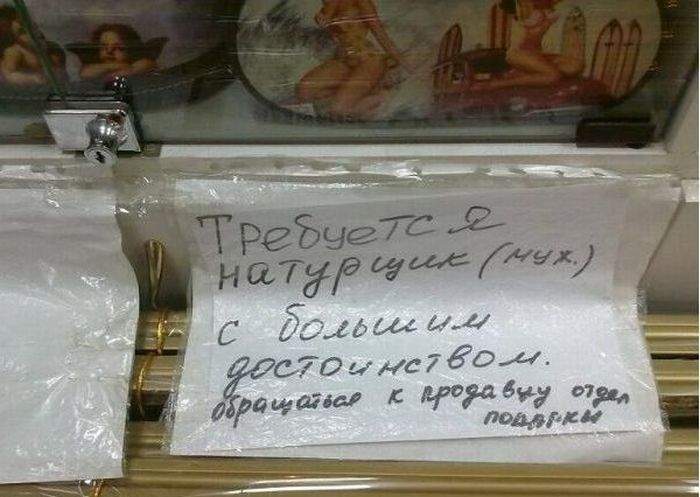 Требуется
натурщик (муж.)
с большим
достоинством.
обращаться к продавцу отдел
подарки